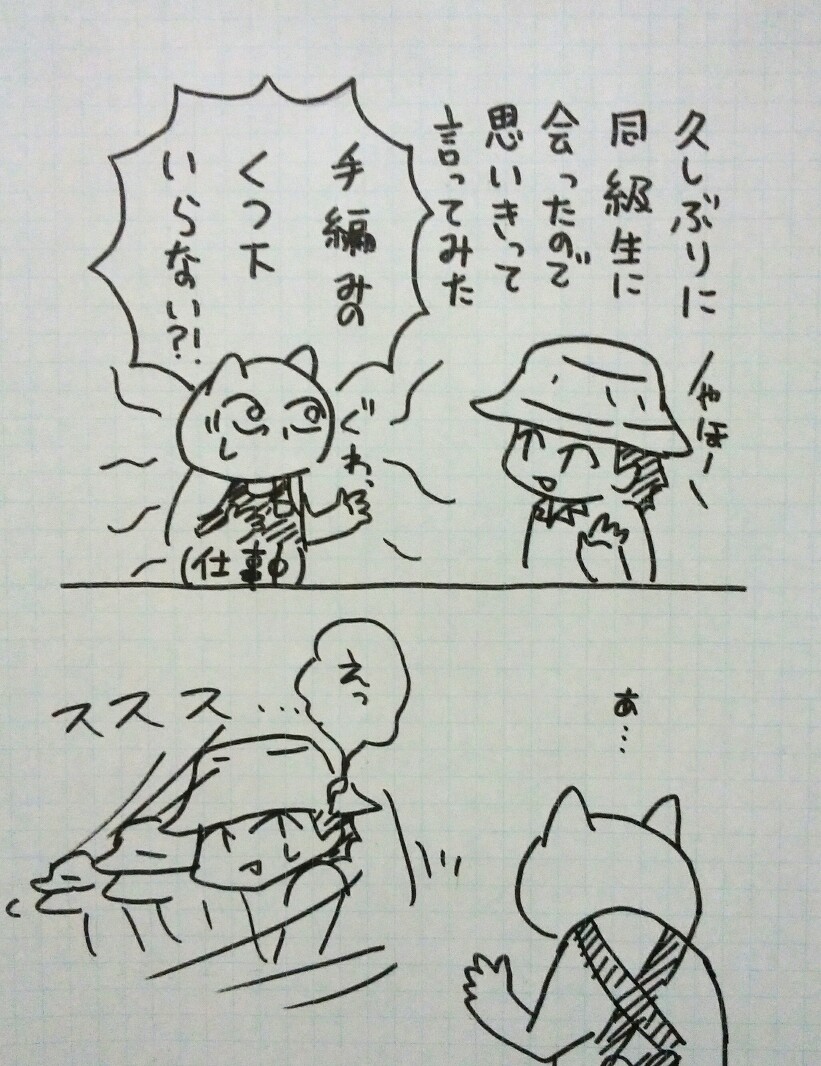 久しぶりに
同級生に
会ったので
思いきって
言ってみた
やほー
手編みの
くつ下
いらない?!
ぐわっ
(仕事中)
あ…
えっ
ススス…